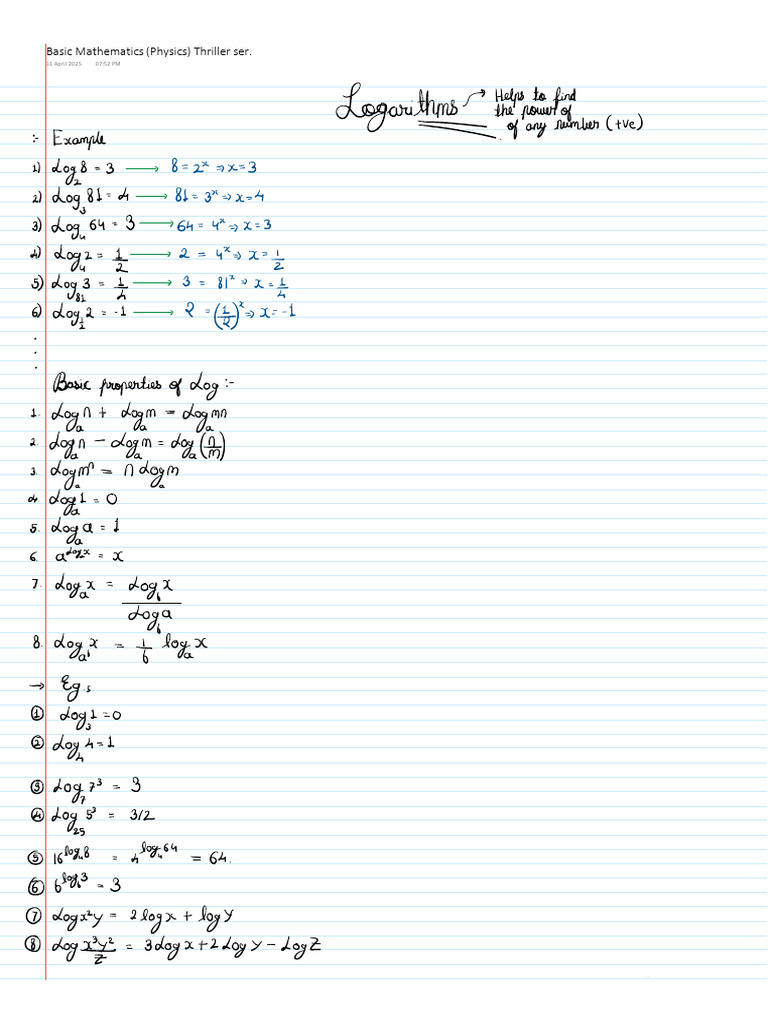 Basic Mathematics (Physics) Thriller ser.
11 April 2025 07:52 PM
Logarithms → Helps to find
the power of
of any number (+ve)
:- Example
1) Log₂8 = 3 → 8 = 2ˣ ⇒ x = 3
2) Log₃81 = 4 → 81 = 3ˣ ⇒ x = 4
3) Log₄64 = 3 → 64 = 4ˣ ⇒ x = 3
4) Log₄2 = 1/2 → 2 = 4ˣ ⇒ x = 1/2
5) Log₈₁3 = 1/4 → 3 = 81ˣ ⇒ x = 1/4
6) Log_(1/2) 2 = -1 → 2 = (1/2)ˣ ⇒ x = -1
.
.
.
Basic properties of Log :-
1. Logₐn + Logₐm = Logₐmn
2. Logₐn - Logₐm = Logₐ(n/m)
3. Logₐmⁿ = n Logₐm
4. Logₐ1 = 0
5. Logₐa = 1
6. a^(Logₐx) = x
7. Logₐx = Log_b x / Log_b a
8. Log_(a^b) x = 1/b logₐx
→ Eg.s
① Log₃1 = 0
② Log₄4 = 1
③ Log₇7³ = 3
④ Log₂₅5³ = 3/2
⑤ 16^(log₄8) = 4^(log₄64) = 64.
⑥ 6^(log₆3) = 3
⑦ Log x²y = 2 log x + log y
⑧ Log x³y²/z = 3 Log x + 2 Log y - Log z